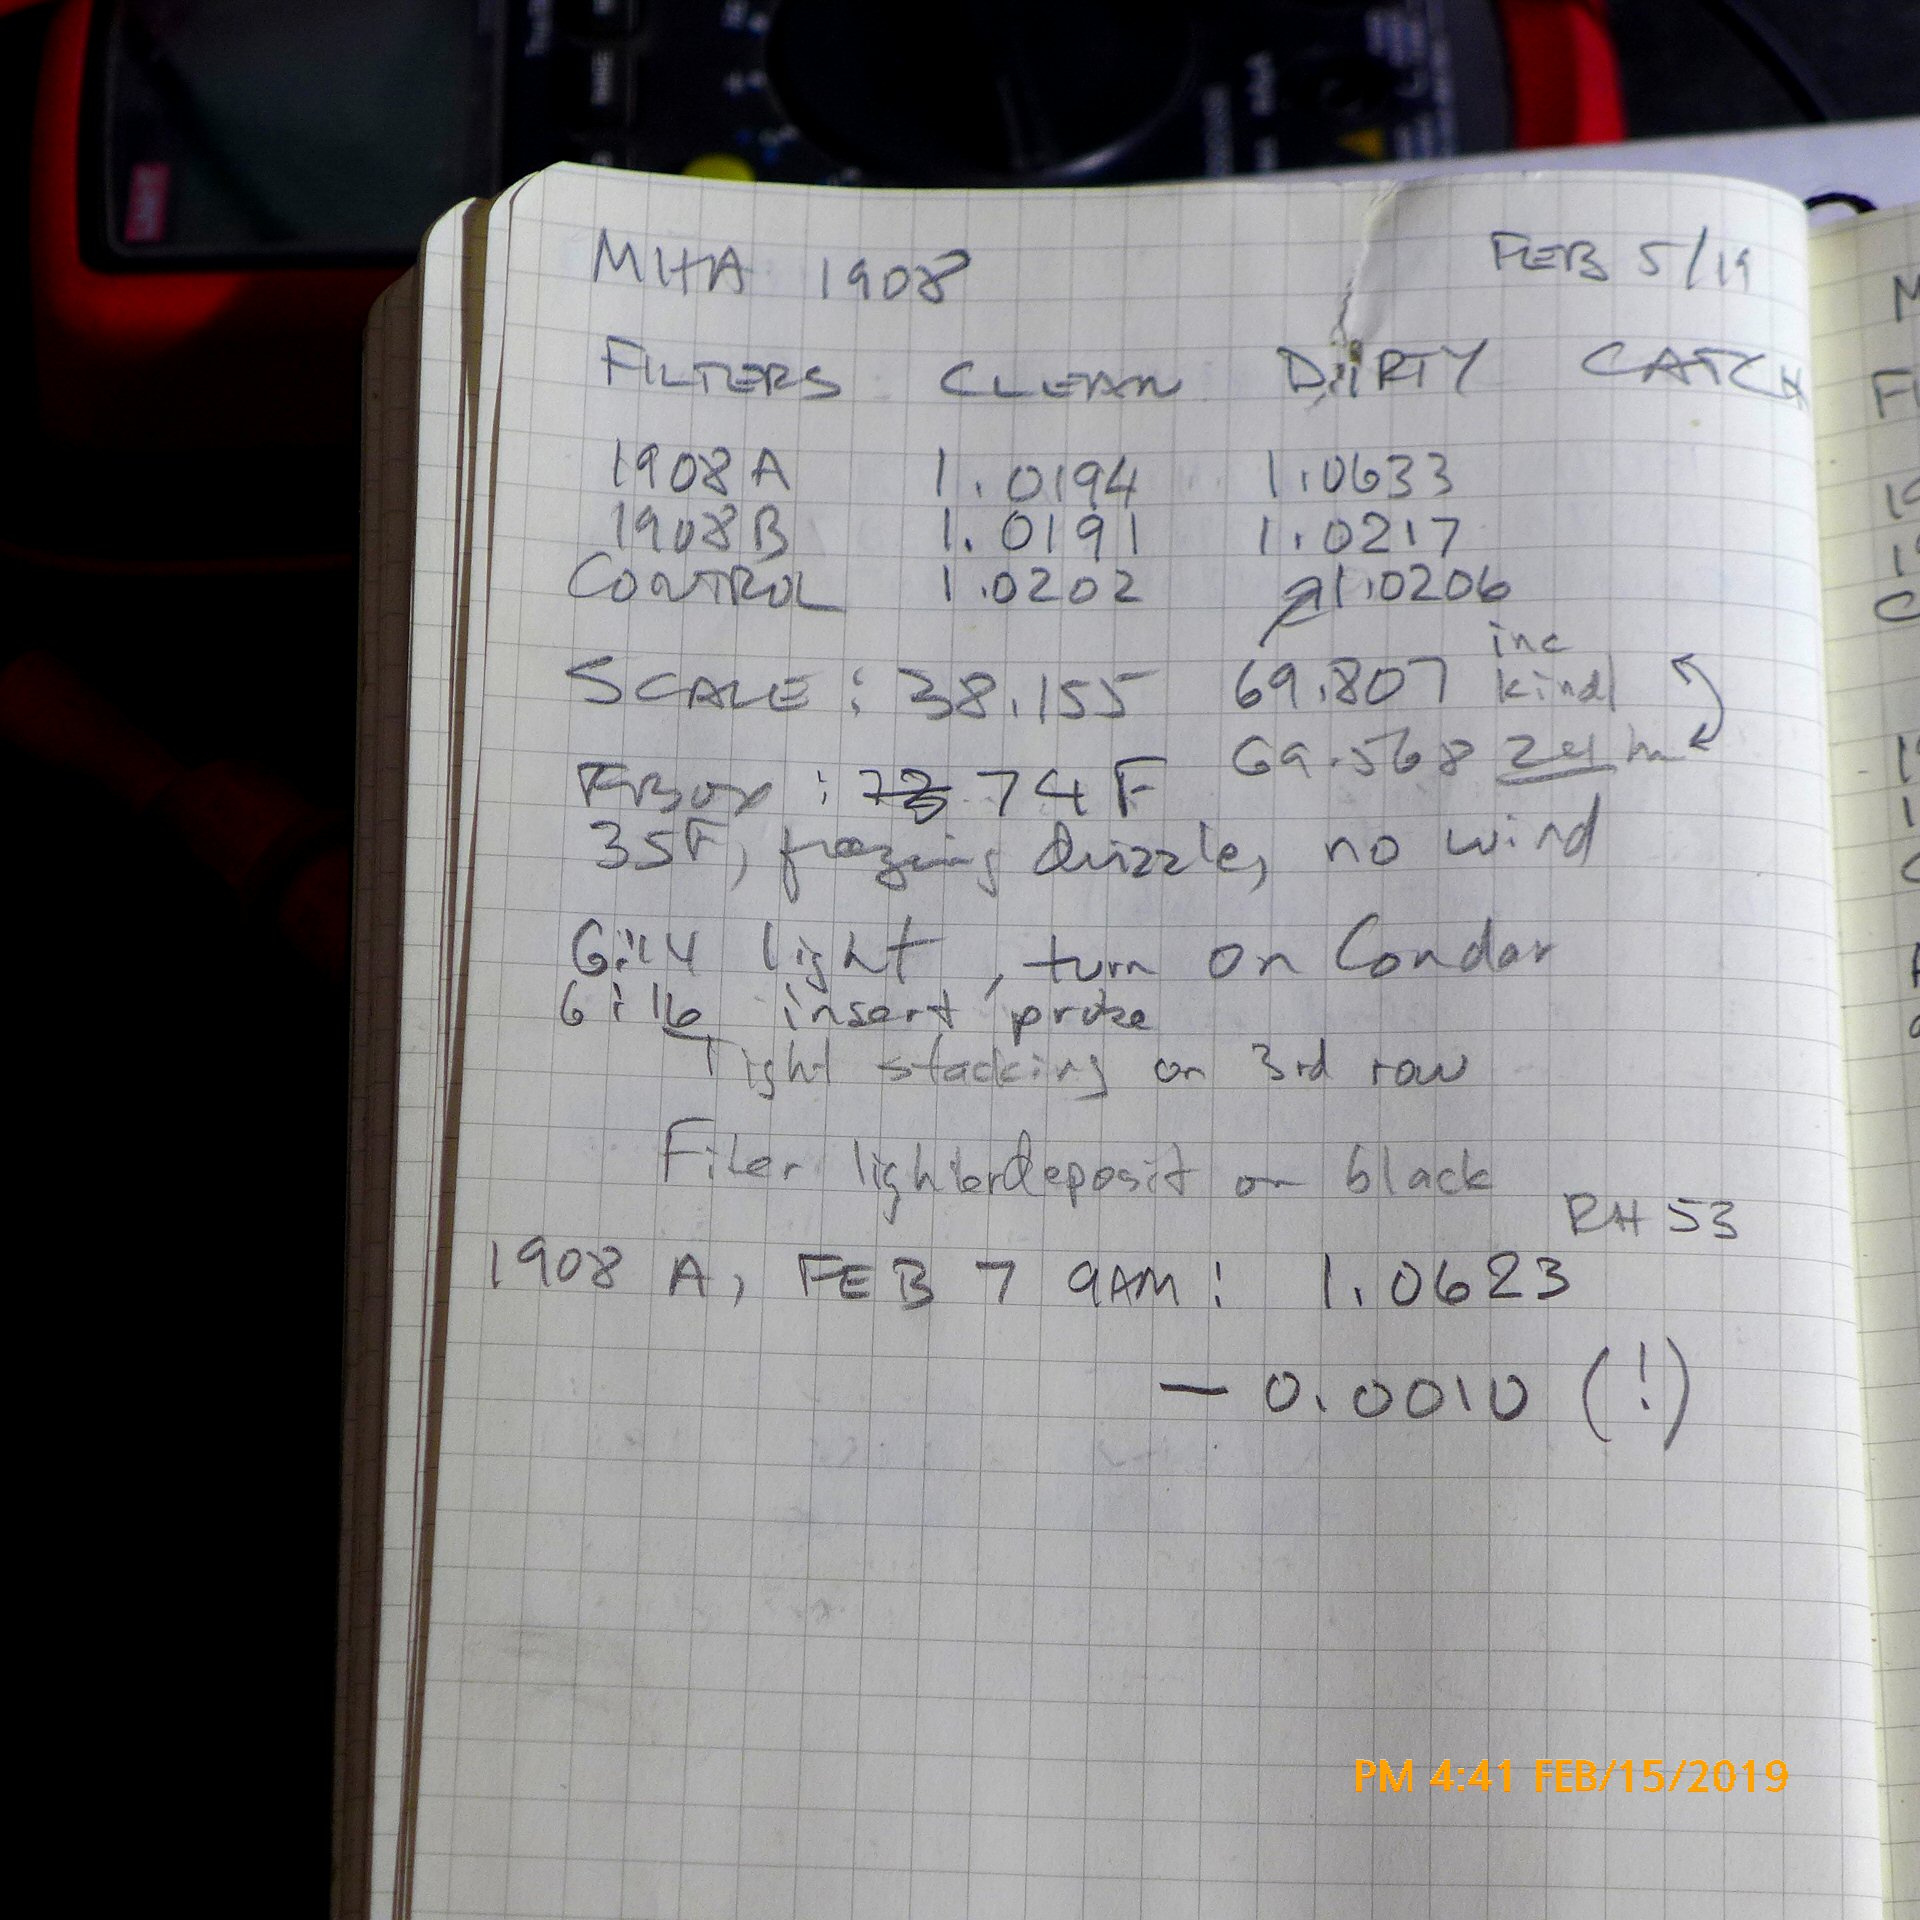 MHA 1908 FEB 5/19
FILTERS CLEAN DIRTY CATCH
1908 A 1.0194 1.0633
1908 B 1.0191 1.0217
CONTROL 1.0202 1.0206
SCALE : 38.155 69.807 inc kindl
69.568
FBox : 74 F
35F, freezing drizzle, no wind
6:14 light, turn on Condar
6:16 insert probe
Tight stacking on 3rd row
Filer lighter deposit on black
RH 53
1908 A, FEB 7 9AM: 1.0623
- 0.0010 (!)
PM 4:41 FEB/15/2019